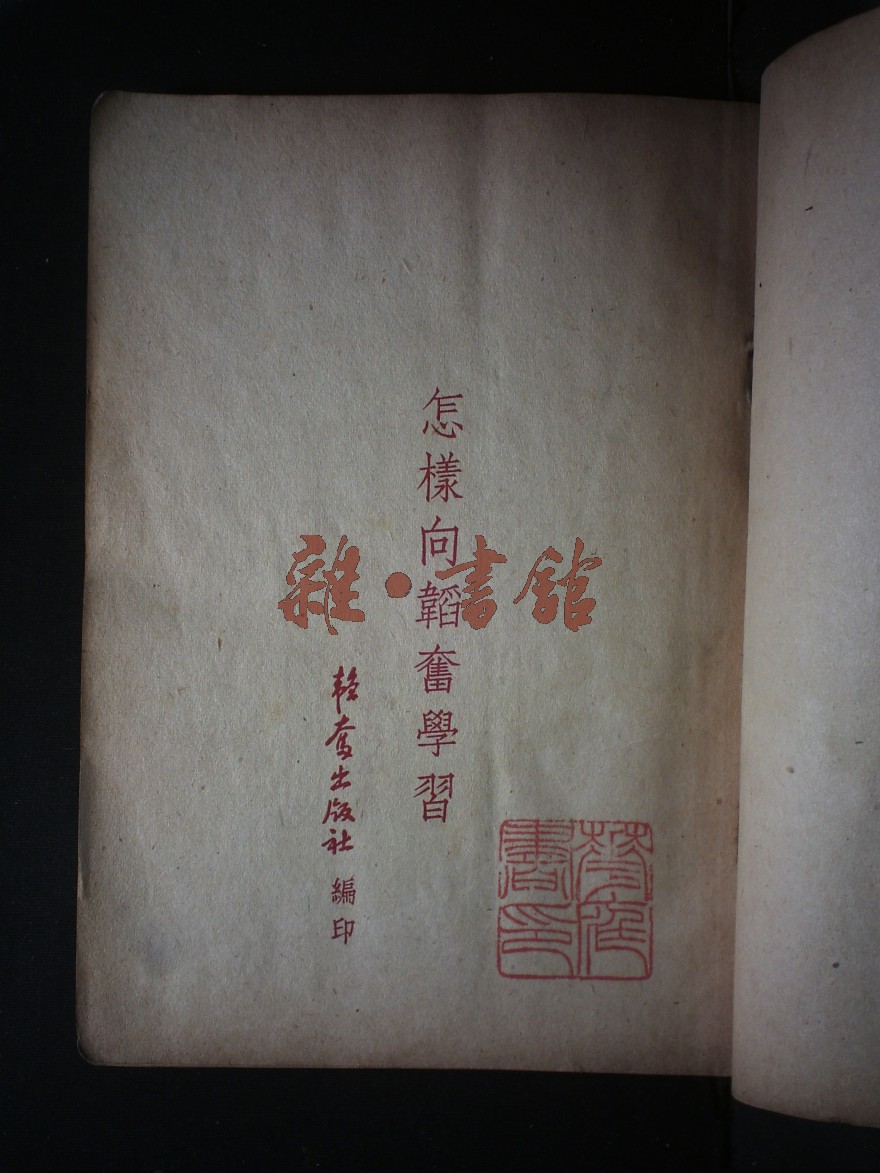 怎樣向韜奮學習
韜奮出版社 編印
雜·書館